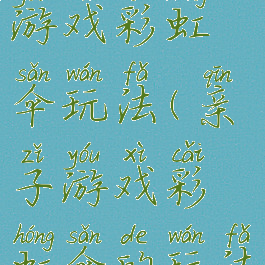 游戏彩虹
sǎn wán fǎ qīn
伞玩法(亲
zǐ yóu xì cǎi
子游戏彩
hóng sǎn de wán fǎ
虹伞的玩法